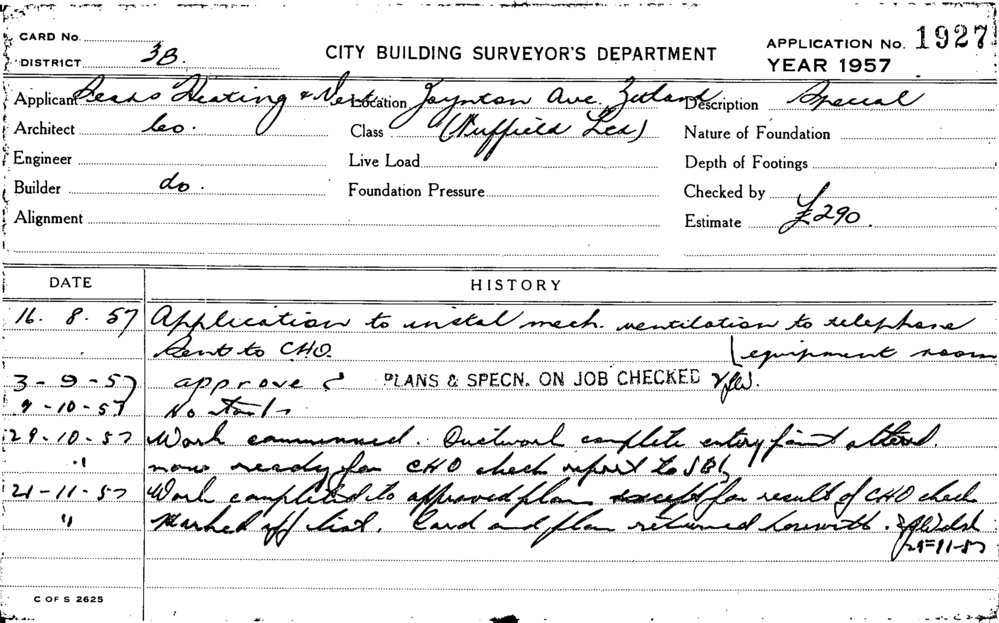 CARD No.
DISTRICT 3B.
CITY BUILDING SURVEYOR'S DEPARTMENT
APPLICATION No. 1927
YEAR 1957
Applicant Heating & Vent Location Joynton Ave. Zetland Description Special
Architect Co. Class (Nuffield Led) Nature of Foundation
Engineer Live Load Depth of Footings
Builder do. Foundation Pressure Checked by
Alignment Estimate £290.
DATE HISTORY
16. 8. 57 Application to instal mech. ventilation to telephone
Sent to CHO. (equipment room
3-9-57 approve PLANS & SPECN. ON JOB CHECKED
9-10-57 No start
29-10-57 Work commenced. Ductwork complete entry point altered.
" now ready for CHO check report to SBI
21-11-57 Work completed to approved plan except for result of CHO check
" Marked off list. Card and plan returned herewith.
21=11-57
C OF S 2625